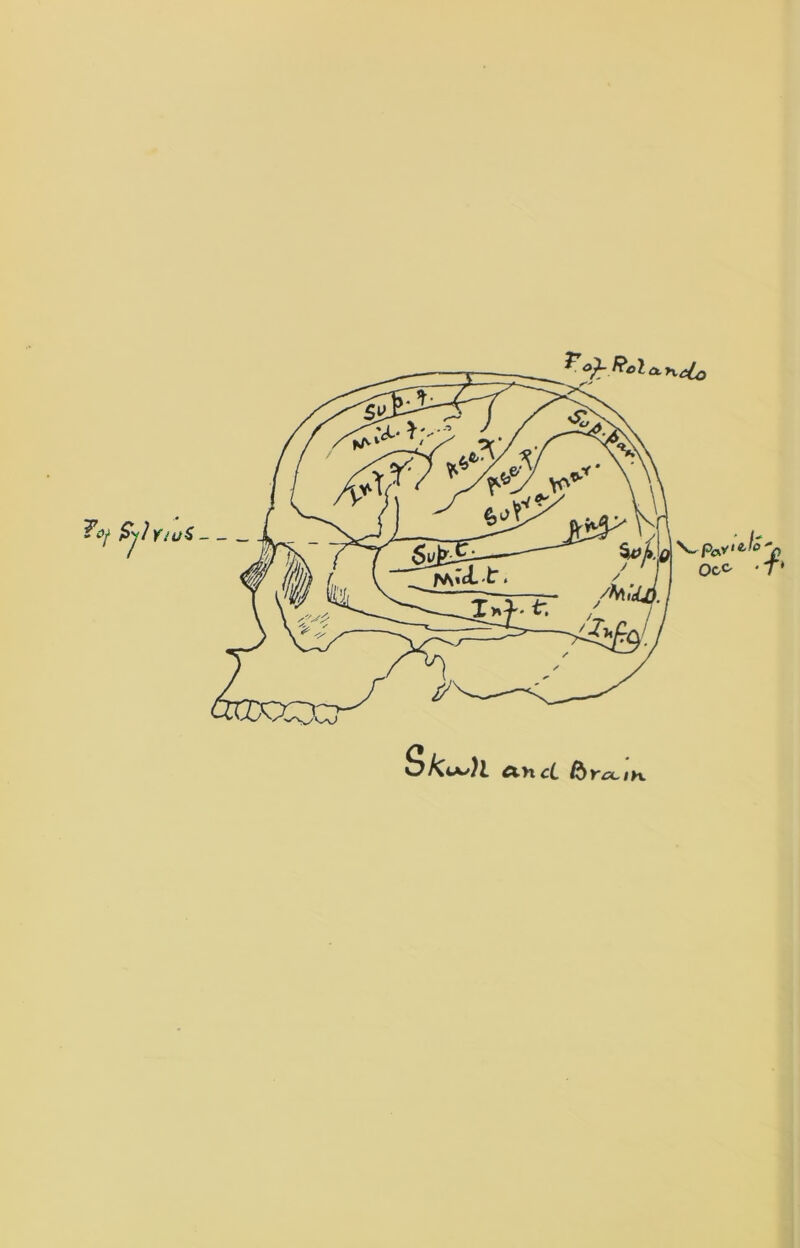 F of Rolando
Sup. f.
Mid. f.
Inf. f.
Asc. f.
Asc. f.
Sup. par.
Supra mar.
Ang.
F of Sylvius
Sup. t.
Mid. t.
Inf. t.
Sup. o
Mid o.
Inf. o.
Parieto
Occ. f.
Skull and Brain